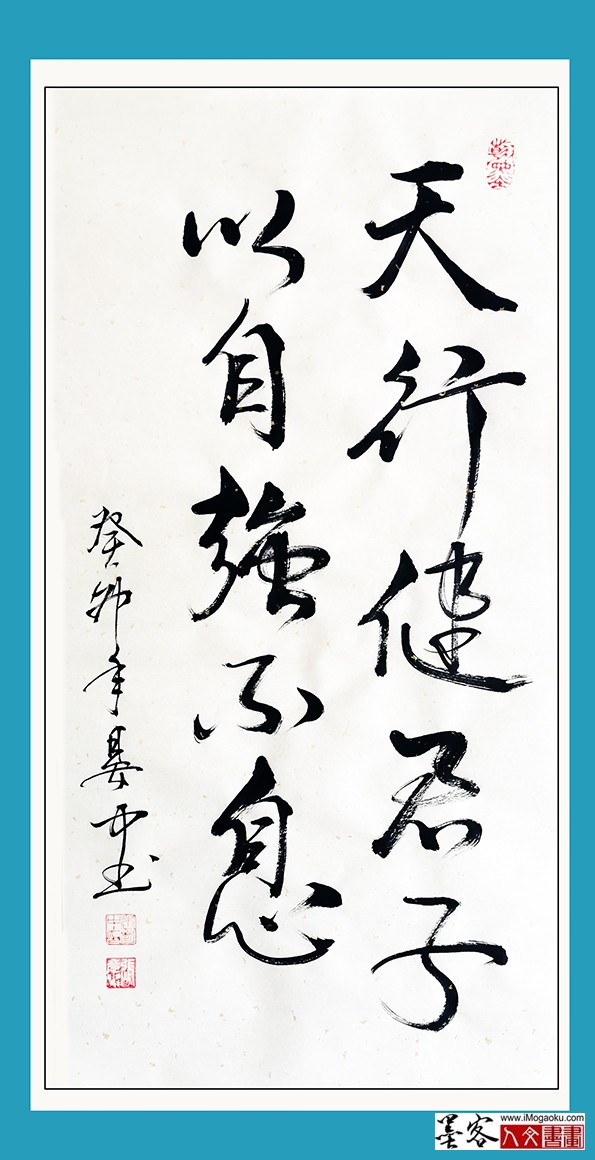 天行健君子
以自強不息
癸卯年
书
墨客
www.iMogaoku.com
人文書畫